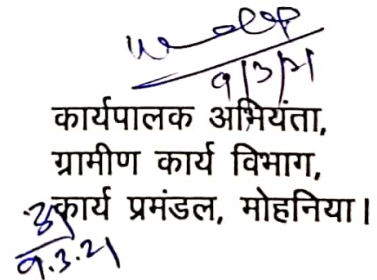 9/3/21
कार्यपालक अभियंता,
ग्रामीण कार्य विभाग,
कार्य प्रमंडल, मोहनिया।
9.3.21